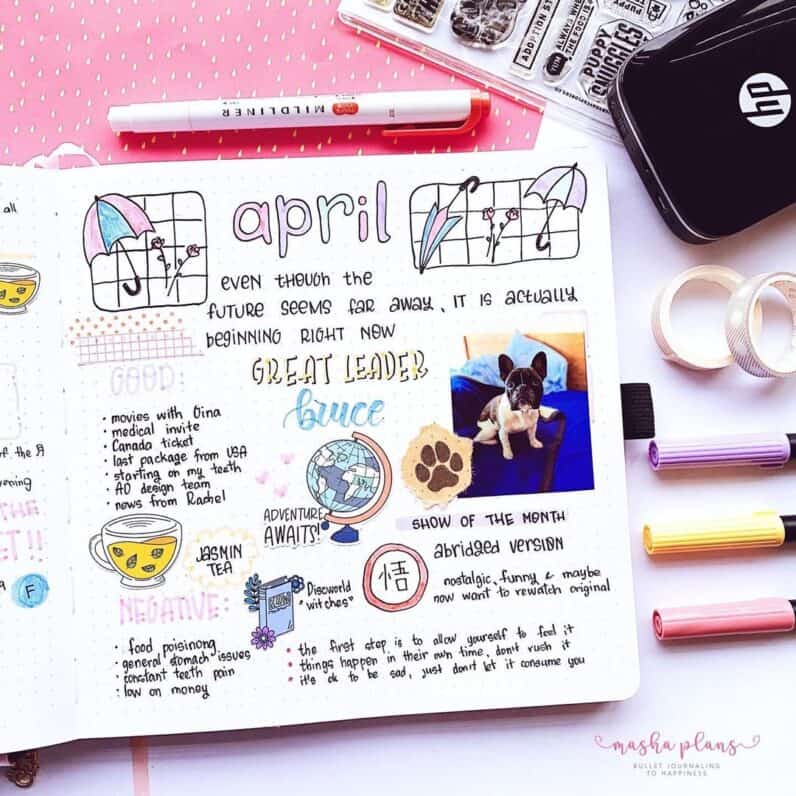 ADOPTION
ALWAYS
THE FOOD
YUM
PUPPY
SNUGGLES
hp
MILDLINER
all
april
even though the
future seems far away, it is actually
beginning right now
GOOD:
GREAT LEADER
bruce
• movies with Gina
• medical invite
• Canada ticket
• last package from USA
• starting on my teeth
• AD design team
• news from Rachel
ADVENTURE
AWAITS!
SHOW OF THE MONTH
abridged version
悟
nostalgic, funny & maybe
now want to rewatch original
JASMIN
TEA
"Discworld
witches"
NEGATIVE:
• food poisinong
• general stomach issues
• constant teeth pain
• low on money
• the first step is to allow yourself to feel it
• things happen in their own time, don't rush it
• it's ok to be sad, just don't let it consume you
of the Я
vening
THE
ET!!
F
masha plans
BULLET JOURNALING
TO HAPPINESS